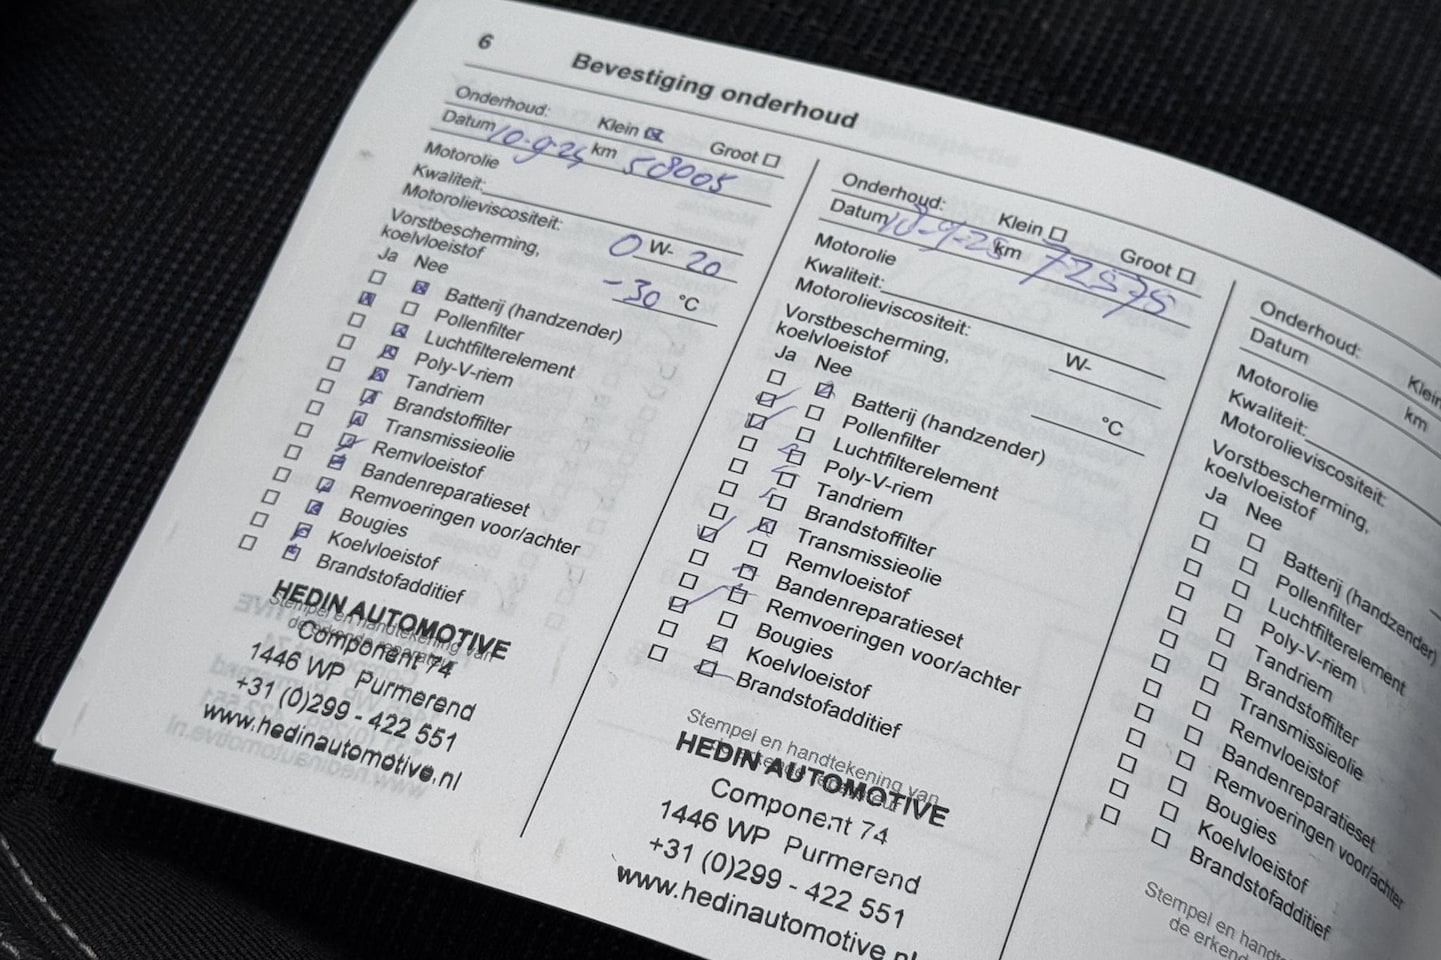 6 Bevestiging onderhoud
Onderhoud: Klein Groot
Datum 10-9-24 km 58005
Motorolie
Kwaliteit:
Motorolieviscositeit: 0 W- 20
Vorstbescherming,
koelvloeistof -30 °C
Ja Nee
Batterij (handzender)
Pollenfilter
Luchtfilterelement
Poly-V-riem
Tandriem
Brandstoffilter
Transmissieolie
Remvloeistof
Bandenreparatieset
Remvoeringen voor/achter
Bougies
Koelvloeistof
Brandstofadditief
Stempel en handtekening van
de erkende reparateur
HEDIN AUTOMOTIVE
Component 74
1446 WP Purmerend
+31 (0)299 - 422 551
www.hedinautomotive.nl
Onderhoud: Klein Groot
Datum 18-9-25 km 72575
Motorolie
Kwaliteit:
Motorolieviscositeit: W-
Vorstbescherming,
koelvloeistof °C
Ja Nee
Batterij (handzender)
Pollenfilter
Luchtfilterelement
Poly-V-riem
Tandriem
Brandstoffilter
Transmissieolie
Remvloeistof
Bandenreparatieset
Remvoeringen voor/achter
Bougies
Koelvloeistof
Brandstofadditief
Stempel en handtekening van
de erkende reparateur
HEDIN AUTOMOTIVE
Component 74
1446 WP Purmerend
+31 (0)299 - 422 551
www.hedinautomotive.nl
Onderhoud: Klein
Datum km
Motorolie
Kwaliteit:
Motorolieviscositeit:
Vorstbescherming,
koelvloeistof
Ja Nee
Batterij (handzender)
Pollenfilter
Luchtfilterelement
Poly-V-riem
Tandriem
Brandstoffilter
Transmissieolie
Remvloeistof
Bandenreparatieset
Remvoeringen voor/achter
Bougies
Koelvloeistof
Brandstofadditief
Stempel en
de